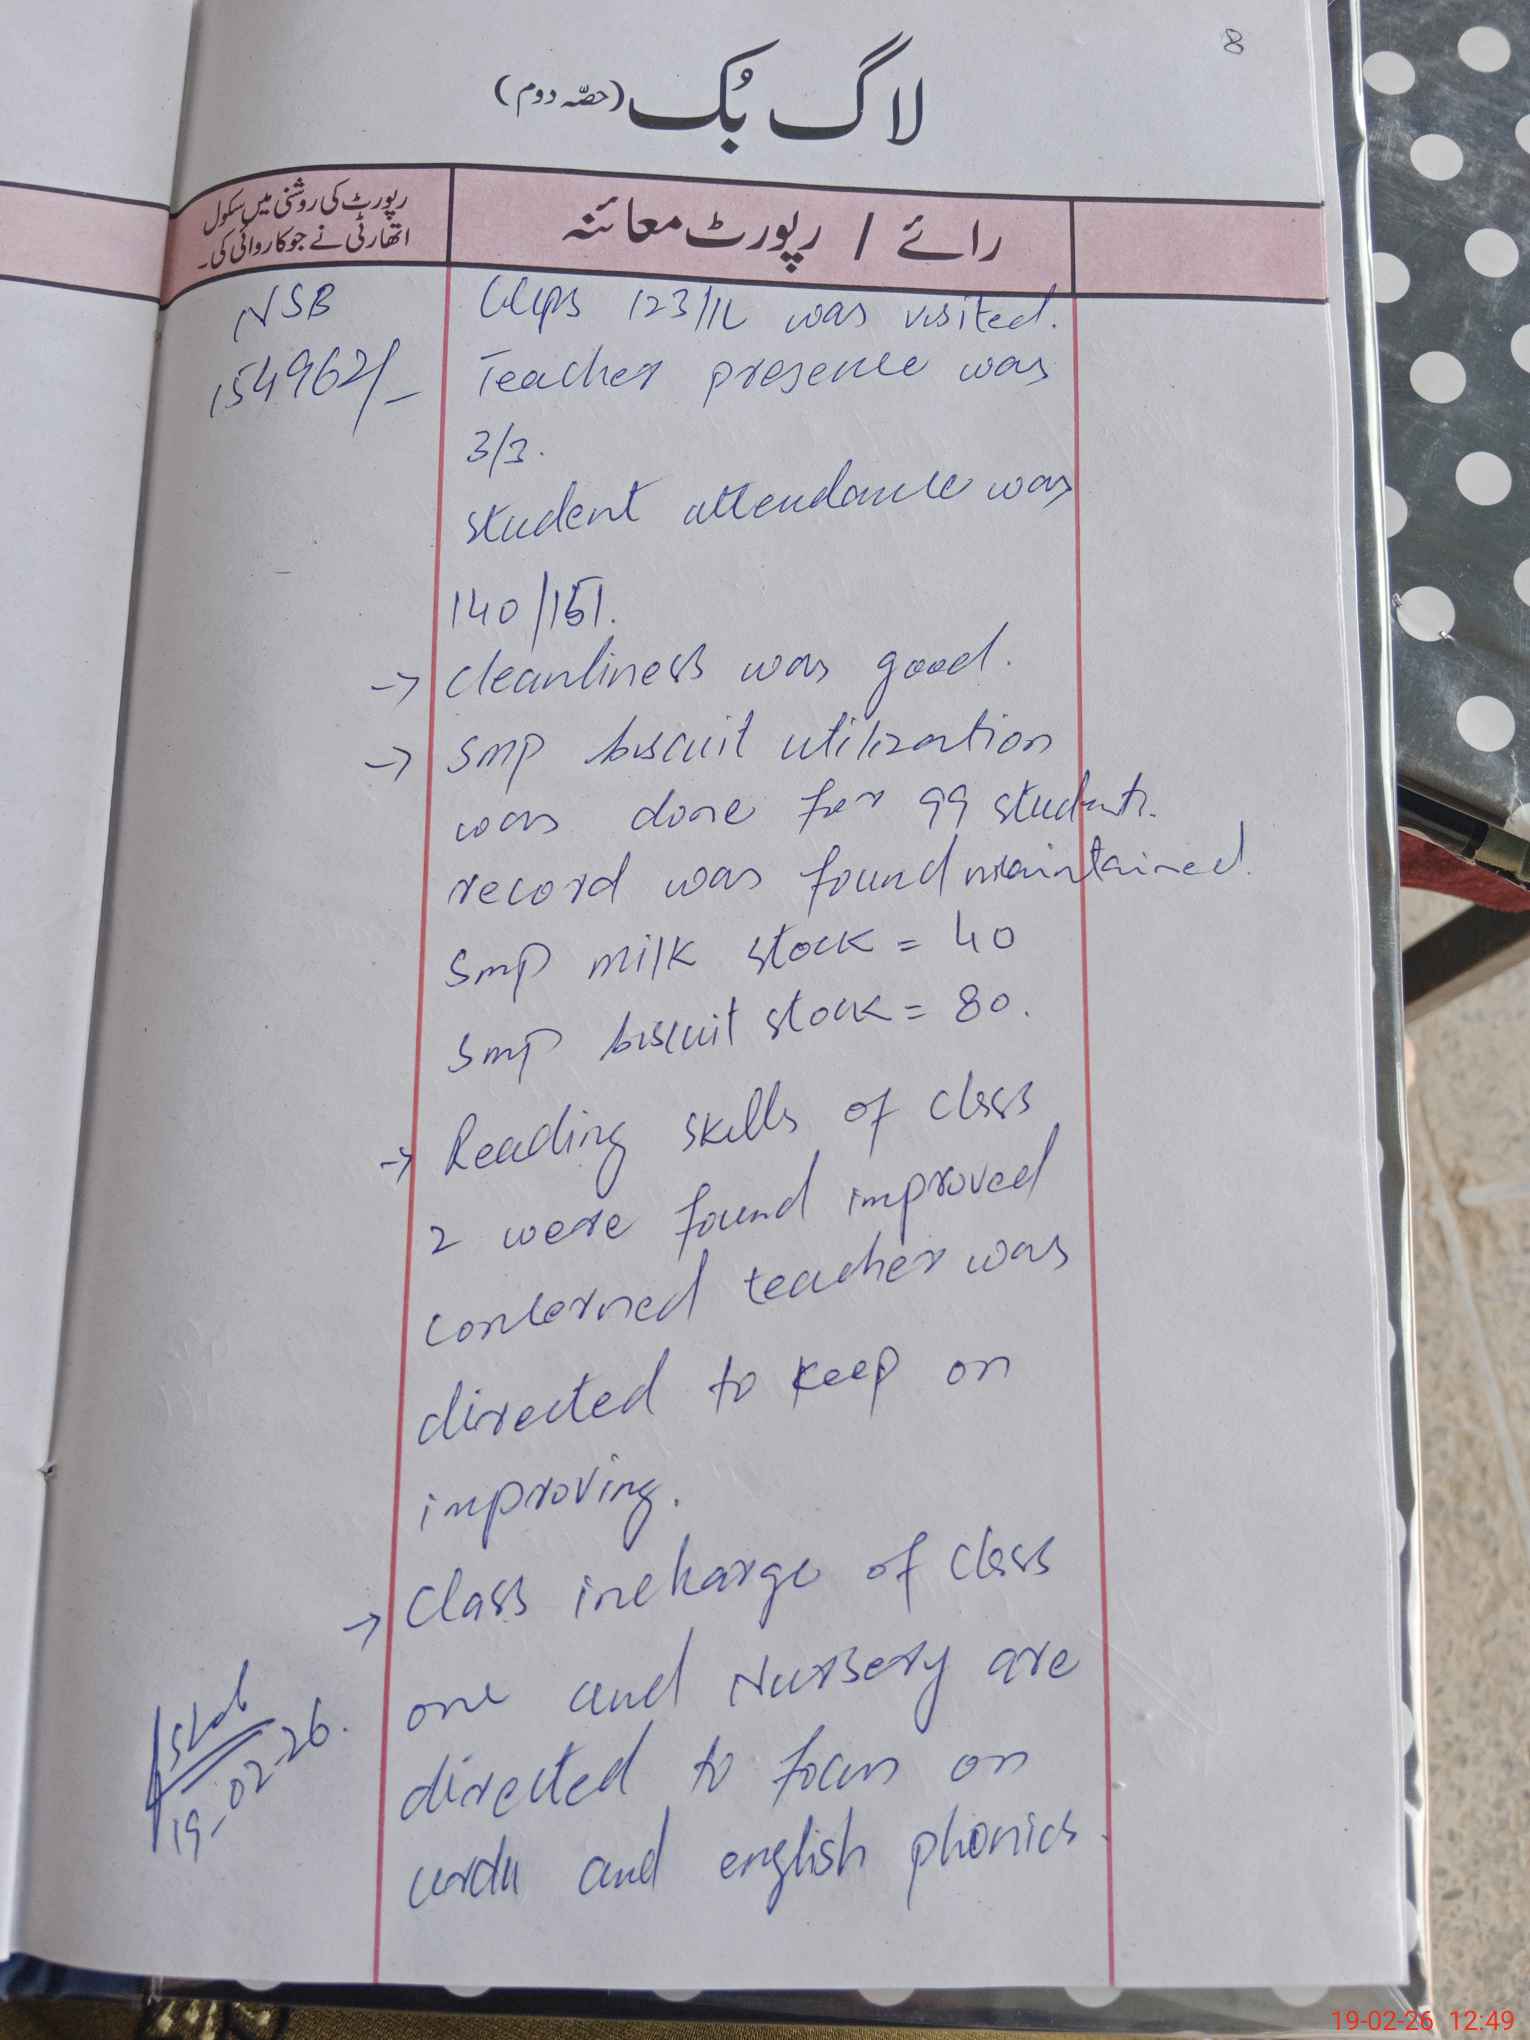 8
لاگ بُک (حصّہ دوم)
رائے / رپورٹ معائنہ
رپورٹ کی روشنی میں سکول
اتھارٹی نے جو کاروائی کی۔
NSB
154962/-
123/1L was visited.
Teacher presence was
3/3.
student attendance was
140/151.
→ cleanliness was good.
→ SMP biscuit utilization
was done for 99 students.
record was found maintained.
SMP milk stock = 40
SMP biscuit stock = 80.
→ Reading skills of class
2 were found improved
concerned teacher was
directed to keep on
improving.
→ Class incharge of class
one and Nursery are
directed to focus on
urdu and english phonics.
19-02-26.
19-02-26 12:49